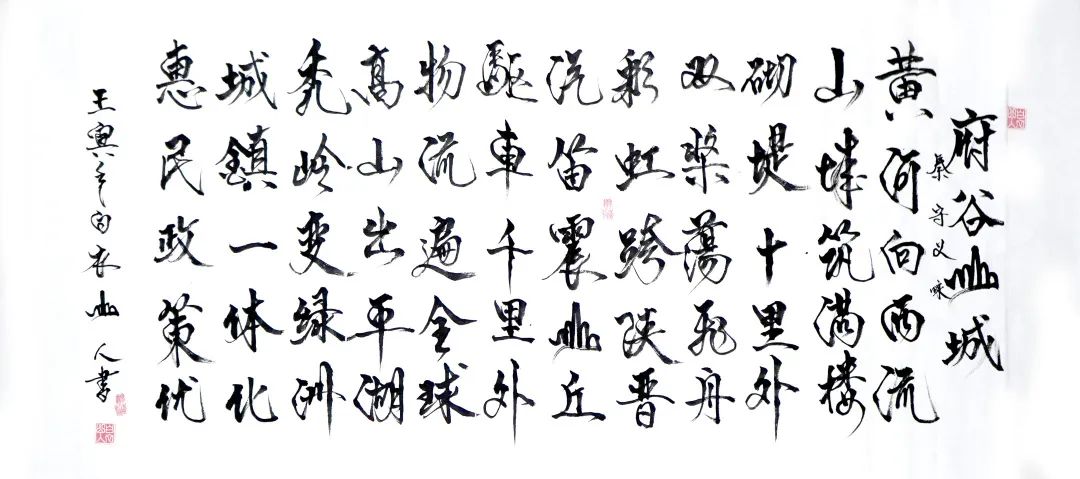 府谷山城
秦守义咏
黄河向西流
山城筑满楼
砌堤十里外
双桨蕩飞舟
彩虹跨陕晋
汽笛震山丘
驅車千里外
物流遍全球
高山出平湖
秃岭变绿洲
城鎮一体化
惠民政策优
壬寅年白衣山人書